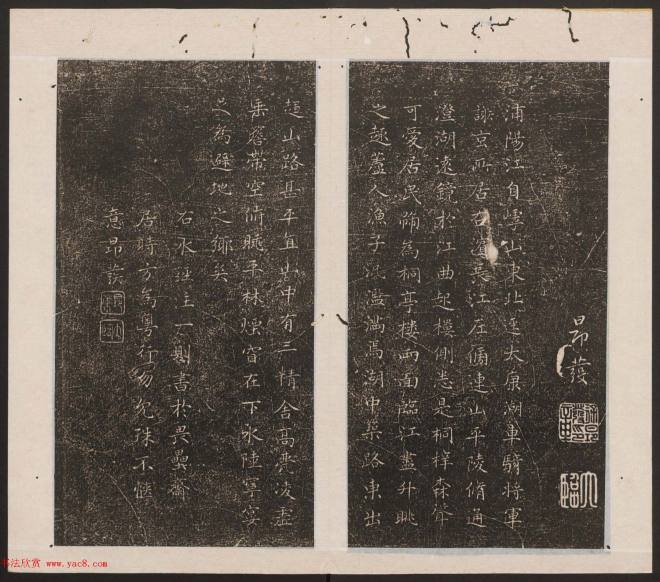 昂發
浦陽江自嶀山東北逕太康湖車騎將軍
謝玄所居右濱長江左傍連山平陵脩通
澄湖遠鏡於江曲起樓側悉是桐梓森聳
可愛居民號為桐亭樓兩面臨江盡升眺
之趣蘆人漁子汎濫滿焉湖中築路東出
趨山路甚平直山中有三精舍高甍凌虛
垂簷帶空俯眺平林煙杳在下水陸寧晏
足為避地之鄉矣
右水經注一則書於畏壘齋
居時方為粵行匆冗殊不愜
意昂發
书法欣赏 www.yac8.com